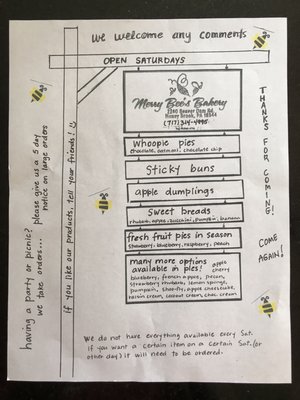 we welcome any comments
OPEN SATURDAYS
Merry Bee's Bakery
Honey Brook, PA 19344
(717) 314-4995
Whoopie pies
chocolate, oatmeal, chocolate chip
Sticky buns
apple dumplings
Sweet breads
rhubarb, apple, zucchini, pumpkin, banana
fresh fruit pies in season
Strawberry, blueberry, raspberry, peach
many more options
available in pies!
apple
cherry
blueberry, french apple, pecan,
Strawberry rhubarb, lemon sponge,
pumpkin, shoo-fly, apple cheesecake,
raisin cream, coconut cream, choc. cream
We do not have everything available every Sat.
if you want a certain item on a certain Sat. (or
other day) it will need to be ordered.
having a party or picnic?
we take orders...
please give us a 5 day
notice on large orders
if you like our products, tell your friends!
THANKS FOR
COMING!
COME
AGAIN!